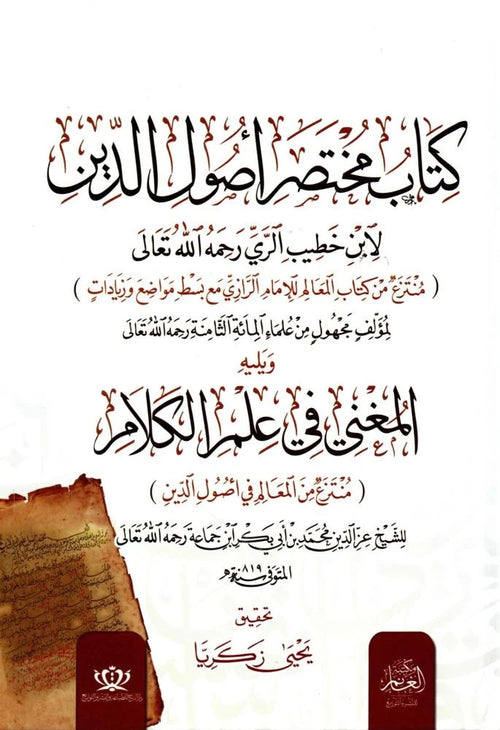 كِتَابُ مُخْتَصَرِ أُصُولِ الدِّينِ
لِابْنِ خَطِيبِ الرَّيِّ رَحِمَهُ اللهُ تَعَالَى
( مُنْتَزَعٌ مِنْ كِتَابِ المَعَالِمِ لِلْإِمَامِ الرَّازِيِّ مَعَ بَسْطِ مَوَاضِعَ وَزِيَادَاتٍ )
لِمُؤَلِّفٍ مَجْهُولٍ مِنْ عُلَمَاءِ المِائَةِ الثَّامِنَةِ رَحِمَهُ اللهُ تَعَالَى
وَيَلِيهِ
المُغْنِي فِي عِلْمِ الكَلَامِ
( مُنْتَزَعٌ مِنَ المَعَالِمِ فِي أُصُولِ الدِّينِ )
لِلشَّيْخِ عِزِّ الدِّينِ مُحَمَّدِ بْنِ أَبِي بَكْرٍ ابْنِ جَمَاعَةَ رَحِمَهُ اللهُ تَعَالَى
المُتَوَفَّى سَنَةَ ٨١٩هـ
تحقيق
يَحْيَىٰ زَكَرِيَّا
مكتبة
الغانم
للنشر والتوزيع